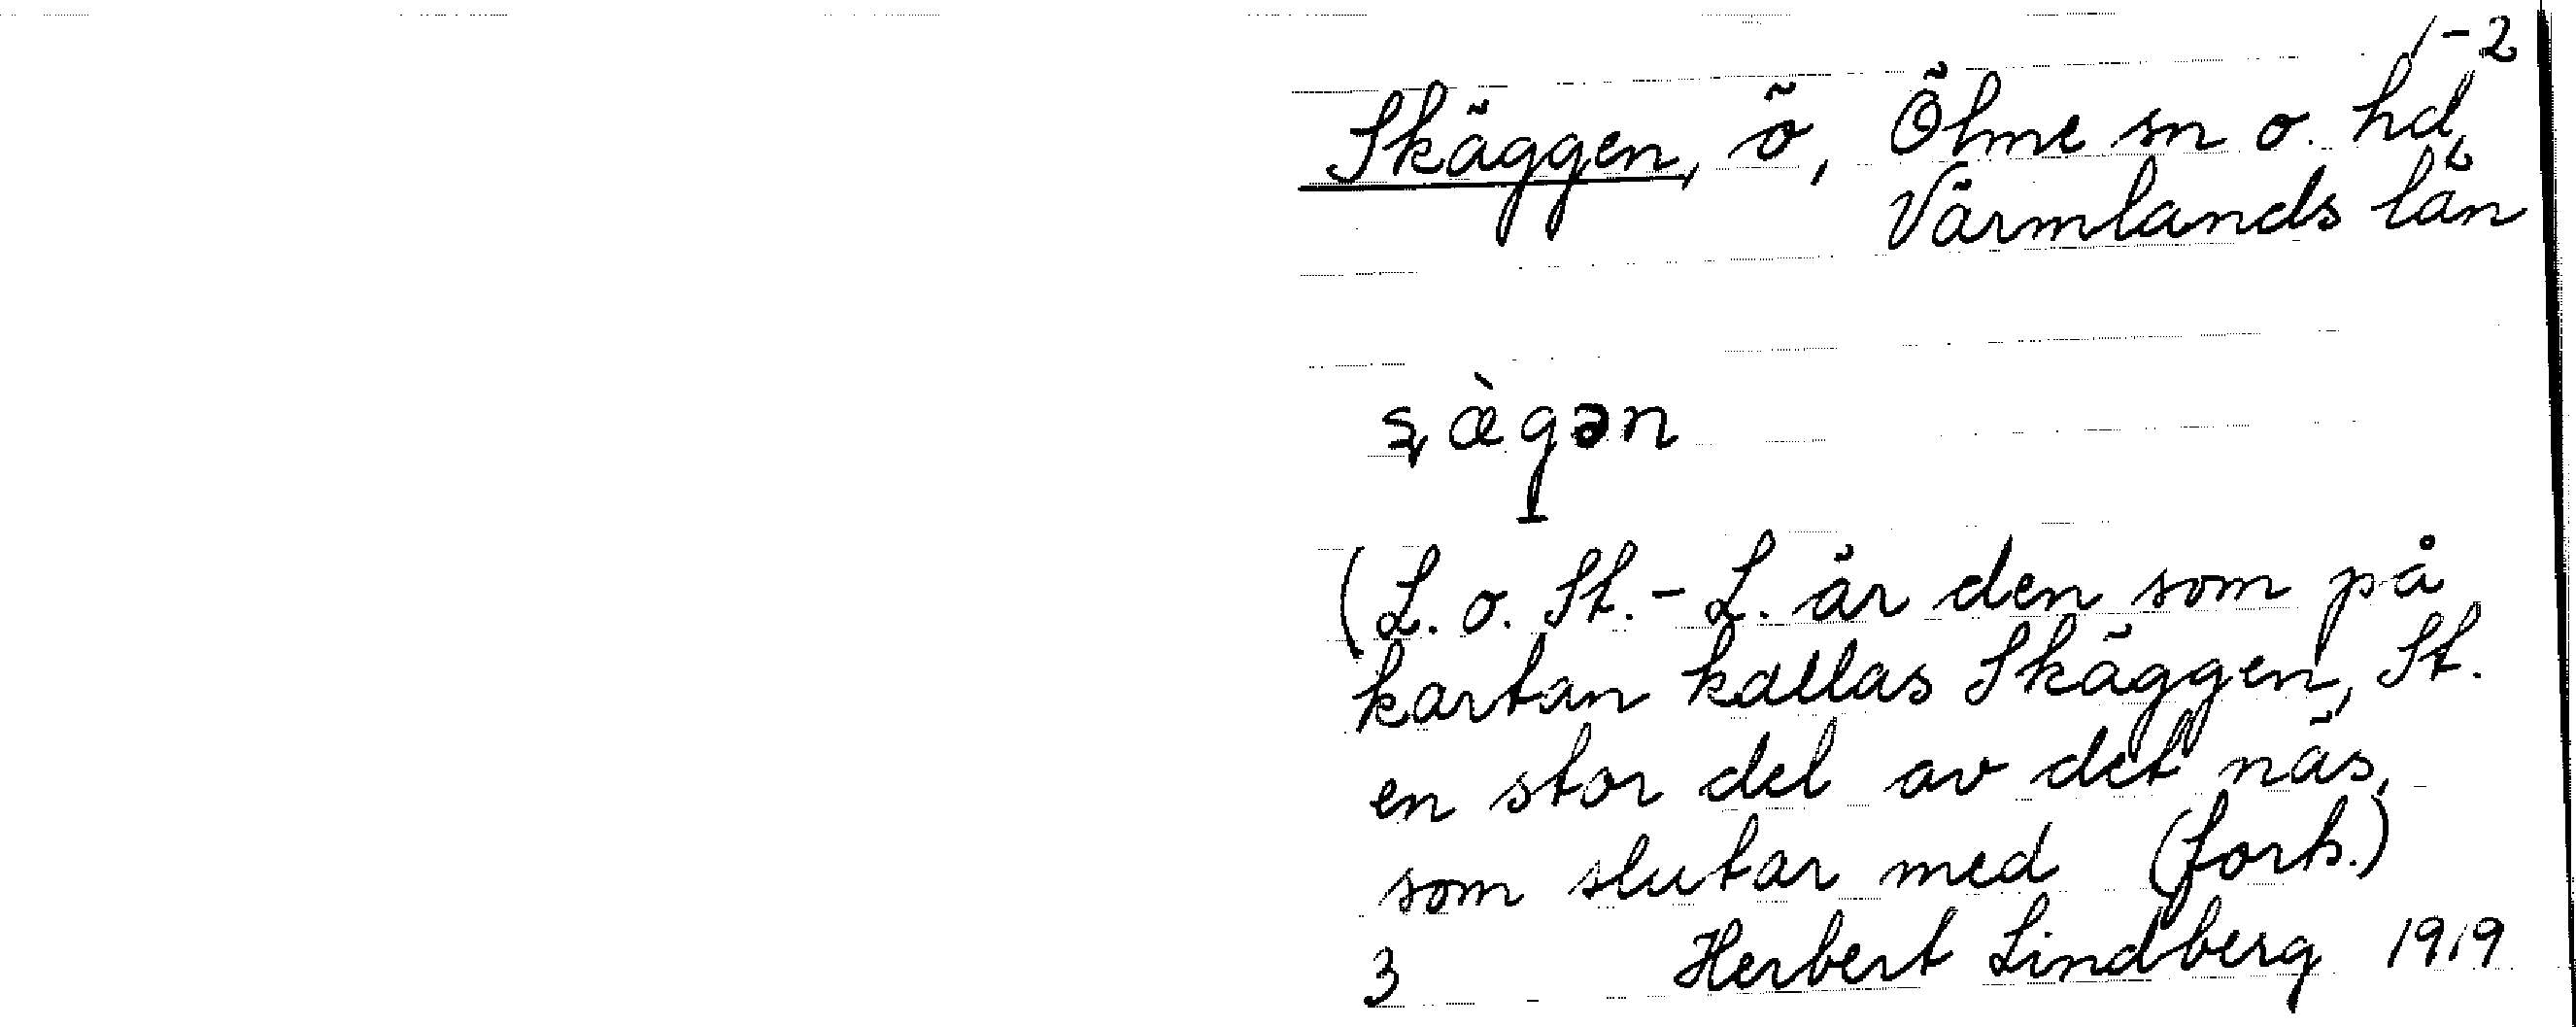 1-2
Skäggen, ö, Ölme sn o. hd,
Värmlands län
(L. o. St. - L. är den som på
kartan kallas Skäggen, St.
en stor del av det näs,
som slutar med (forts.)
3 Herbert Lindberg 1919